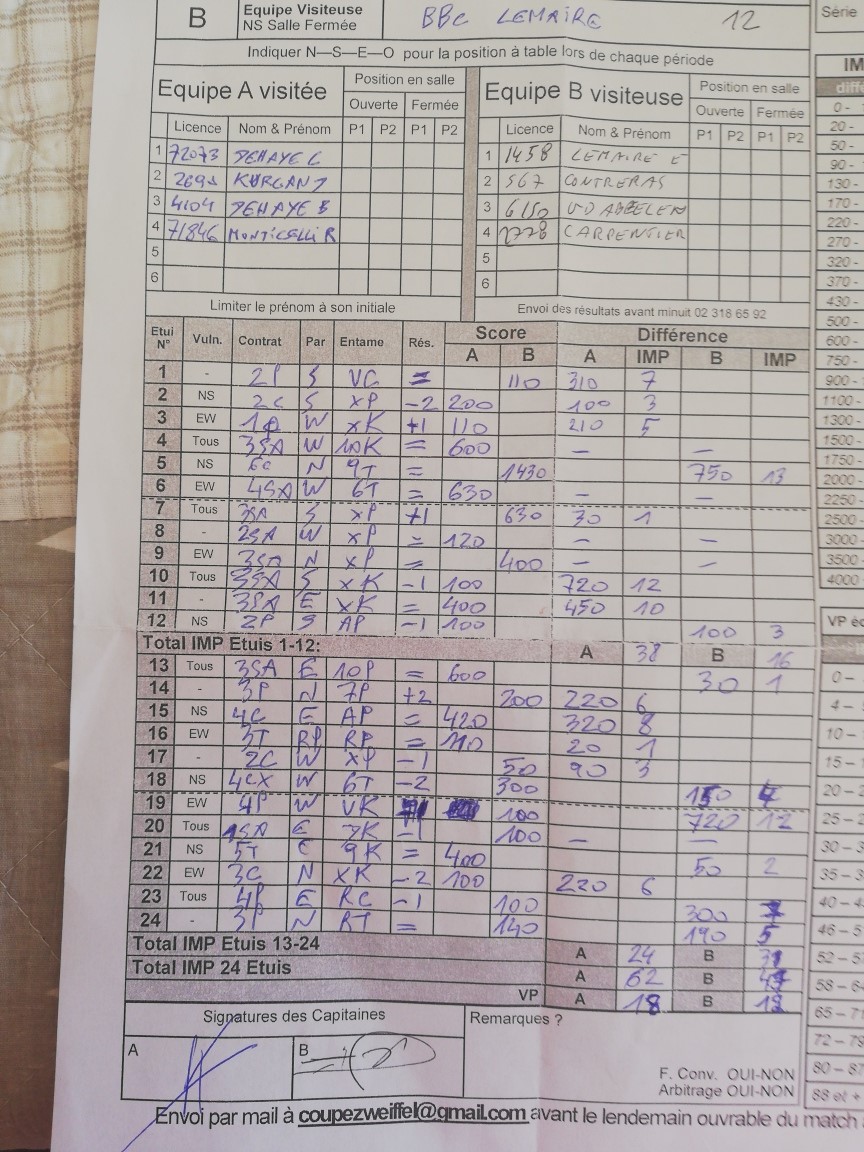 B Equipe Visiteuse BBC LEMAIRE 12 Série
NS Salle Fermée
Indiquer N—S—E—O pour la position à table lors de chaque période
Equipe A visitée Position en salle Equipe B visiteuse Position en salle
Ouverte Fermée Ouverte Fermée
Licence Nom & Prénom P1 P2 P1 P2 Licence Nom & Prénom P1 P2 P1 P2
1 72073 DEHAYE C 1 1458 LEMAIRE E
2 KURGAN J 2 567 CONTRERAS
3 4104 DEHAYE B 3 6150
4 71846 MONTICELLI R 4 CARPENTIER
5 5
6 6
Limiter le prénom à son initiale Envoi des résultats avant minuit 02 318 65 92
Etui N° Vuln. Contrat Par Entame Rés. Score Différence
A B A IMP B IMP
1 - 2P S VC = 110 310 7
2 NS 2C S xP -2 200 100 3
3 EW W xK +1 110 210 5
4 Tous 3SA W 10K = 600 — —
5 NS 6C N 9T = 1430 750 13
6 EW 4SA W 6T = 630 — —
7 Tous 3SA S xP +1 630 30 1
8 - 2SA W xP = 120 — —
9 EW 3SA N xP = 400 — —
10 Tous 3SA S xK -1 100 720 12
11 - 3SA E xK = 400 450 10
12 NS 2P S AP -1 100 100 3
Total IMP Etuis 1-12: A 38 B 16
13 Tous 3SA E 10P = 600 30 1
14 - 3P N 7P +2 200 220 6
15 NS 4C E AP = 420 320 8
16 EW 3T RP RP = 110 20 1
17 - 2C W xP -1 50 90 3
18 NS 4CX W 6T -2 300 4
19 EW 4P W VK 100 720 12
20 Tous 1SA E 7K -1 100 — —
21 NS 5T E 9K = 400 50 2
22 EW 3C N XK -2 100 220 6
23 Tous 4P E RC -1 100 300 7
24 - 3P N RT = 140 190 5
Total IMP Etuis 13-24 A 24 B
Total IMP 24 Etuis A 62 B
VP A 18 B 12
Signatures des Capitaines Remarques ?
A B
F. Conv. OUI-NON
Arbitrage OUI-NON
Envoi par mail à coupezweiffel@gmail.com avant le lendemain ouvrable du match